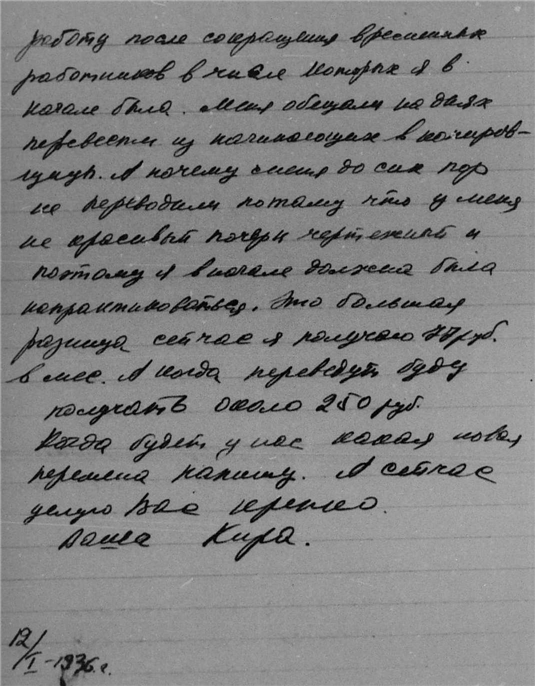 работу после сокращения временных
работников в числе которых я в
начале была. Меня обещали на днях
перевести из начинающих в копиров-
щицы. А почему меня до сих пор
не переводили потому что у меня
не красивый почерк чертежный и
поэтому я в начале должна была
напрактиковаться. Это большая
разница сейчас я получаю руб.
в мес. А когда переведут буду
получать около 250 руб.
Когда будет у нас какая новая
перемена напишу. А сейчас
целую Вас крепко.
Ваша Кира.
12/I-1936 г.